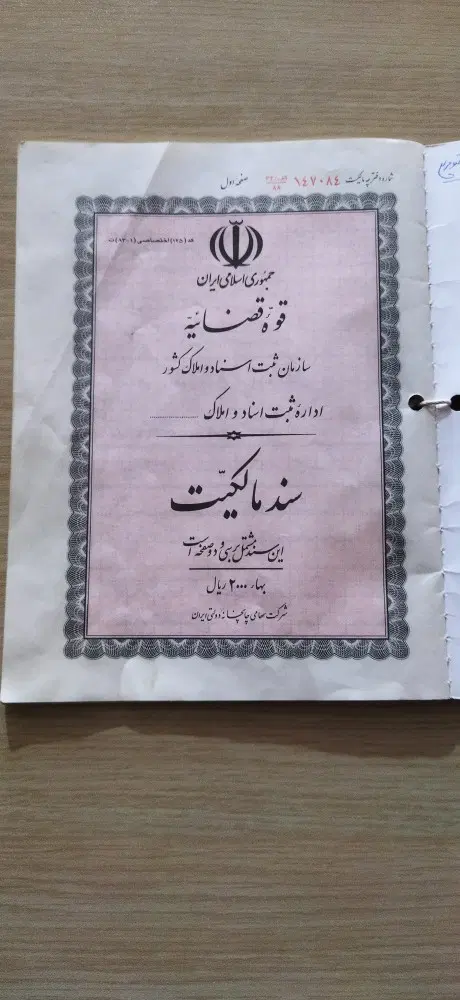 شماره دفترچه مالکیت ۱٤۷۰۸٤ صفحه اول
کد (۱۲۵) اختصاصی (۹۳۰۱) ت
جمهوری اسلامی ایران
قوه قضائیه
سازمان ثبت اسناد و املاک کشور
اداره ثبت اسناد و املاک ....................
سند مالکیت
این سند مشتمل بر سی و دو صفحه است
بهاء ۲۰۰۰ ریال
شرکت سهامی چاپخانه دولتی ایران